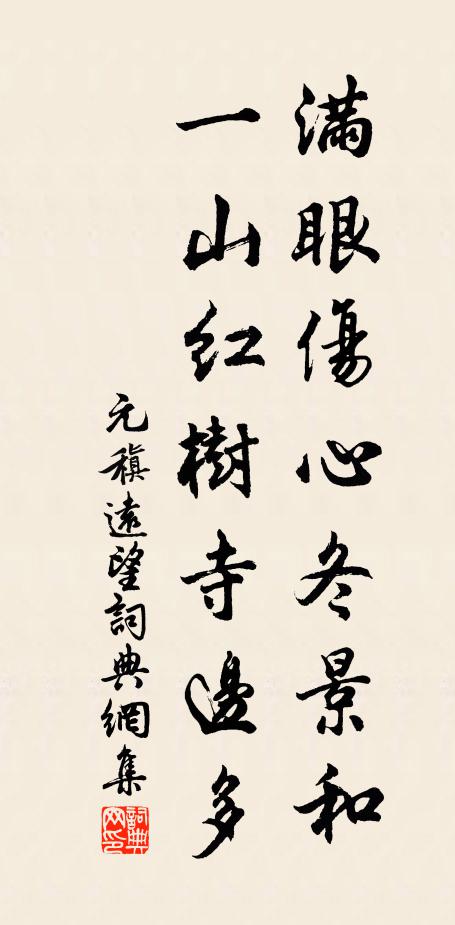 滿眼傷心冬景和
一山紅樹寺邊多
元稹遠望詞典網集
詞典網印